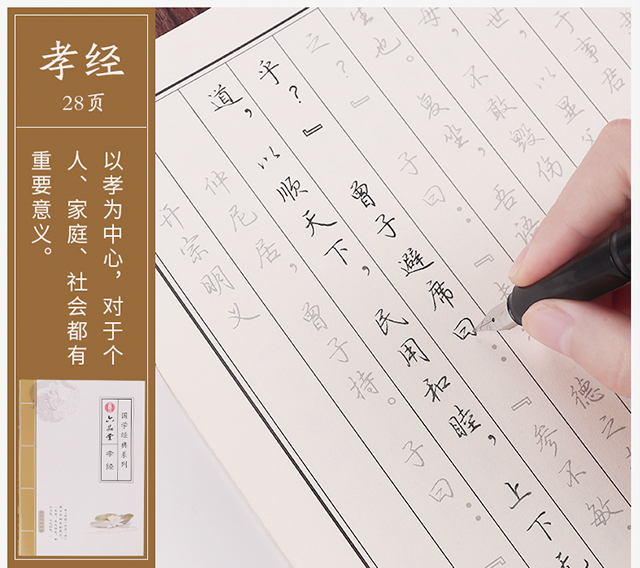 孝经
28页
以孝为中心，对于个
人、家庭、社会都有
重要意义。
国学经典系列
六品堂
孝经
开宗明义
仲尼居，曾子持。子曰：
道，以顺天下，民用和睦，上下无
乎？』曾子避席曰：『参不敏
之？』子曰：『德之
生也。复坐，吾语
母，不敢毁伤
世，以显父
于事君